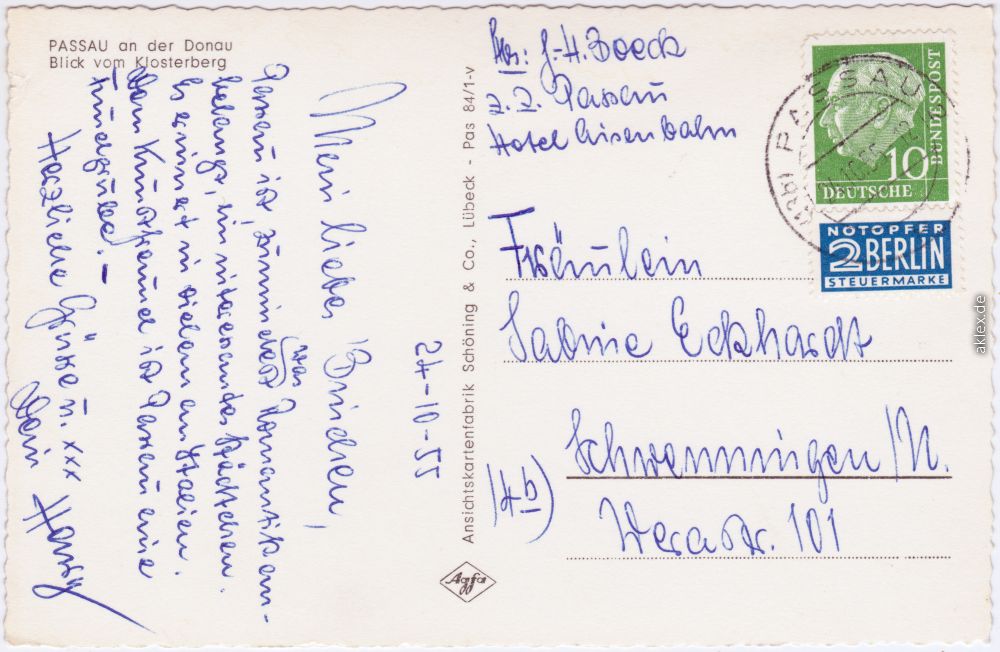 PASSAU an der Donau
Blick vom Klosterberg
24-10-55
Mein liebes
Passau ist, zumindest was Romantik an-
belangt, ein interessantes Städtchen.
Es erinnert in vielem an Italien.
Dem Kunstfreund ist Passau eine
Fundgrube! -
Herzliche Grüsse u. xxx
Dein
Ansichtskartenfabrik Schöning & Co., Lübeck - Pas 84/1-v
Agfa
Abs: J.-H. Boeck
z. Z. Passau
Hotel Eisenbahn
PASSAU
10
DEUTSCHE
BUNDESPOST
NOTOPFER
2 BERLIN
STEUERMARKE
Fräulein
Sabine Eckhardt
(14b)
Schwenningen/N.
Werastr. 101
aklex.de